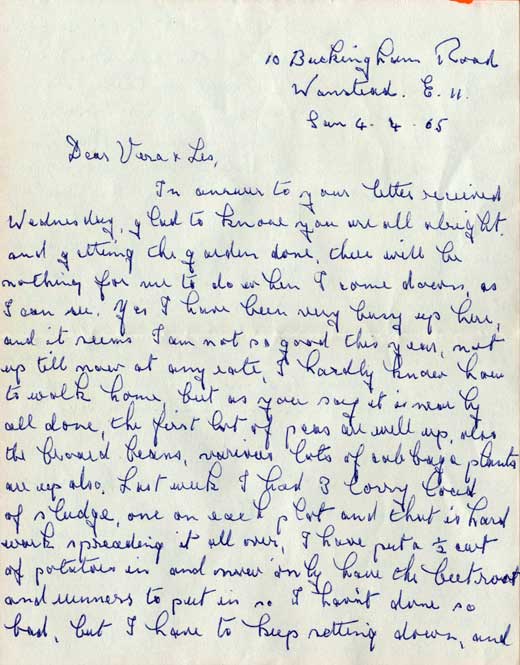 10 Buckingham Road
Wanstead. E. 11.
Sun 4. 4. 65
Dear Vera & Les,
In answer to your letter received
Wednesday, glad to know you are all alright.
and getting the garden done, there will be
nothing for me to do when I come down, as
I can see. Yes I have been very busy up here,
and it seems I am not so good this year, not
up till now at any rate, I hardly knew how
to walk home, but as you say it is nearly
all done, the first lot of peas are well up, also
the broard beans, various lots of cabbage plants
are up also. Last week I had 3 lorry load
of sludge, one on each plot and that is hard
work spreading it all over, I have put a ½ cwt
of potatoes in and now only have the beetroot
and runners to put in so I havnt done so
bad, but I have to keep setting down, and